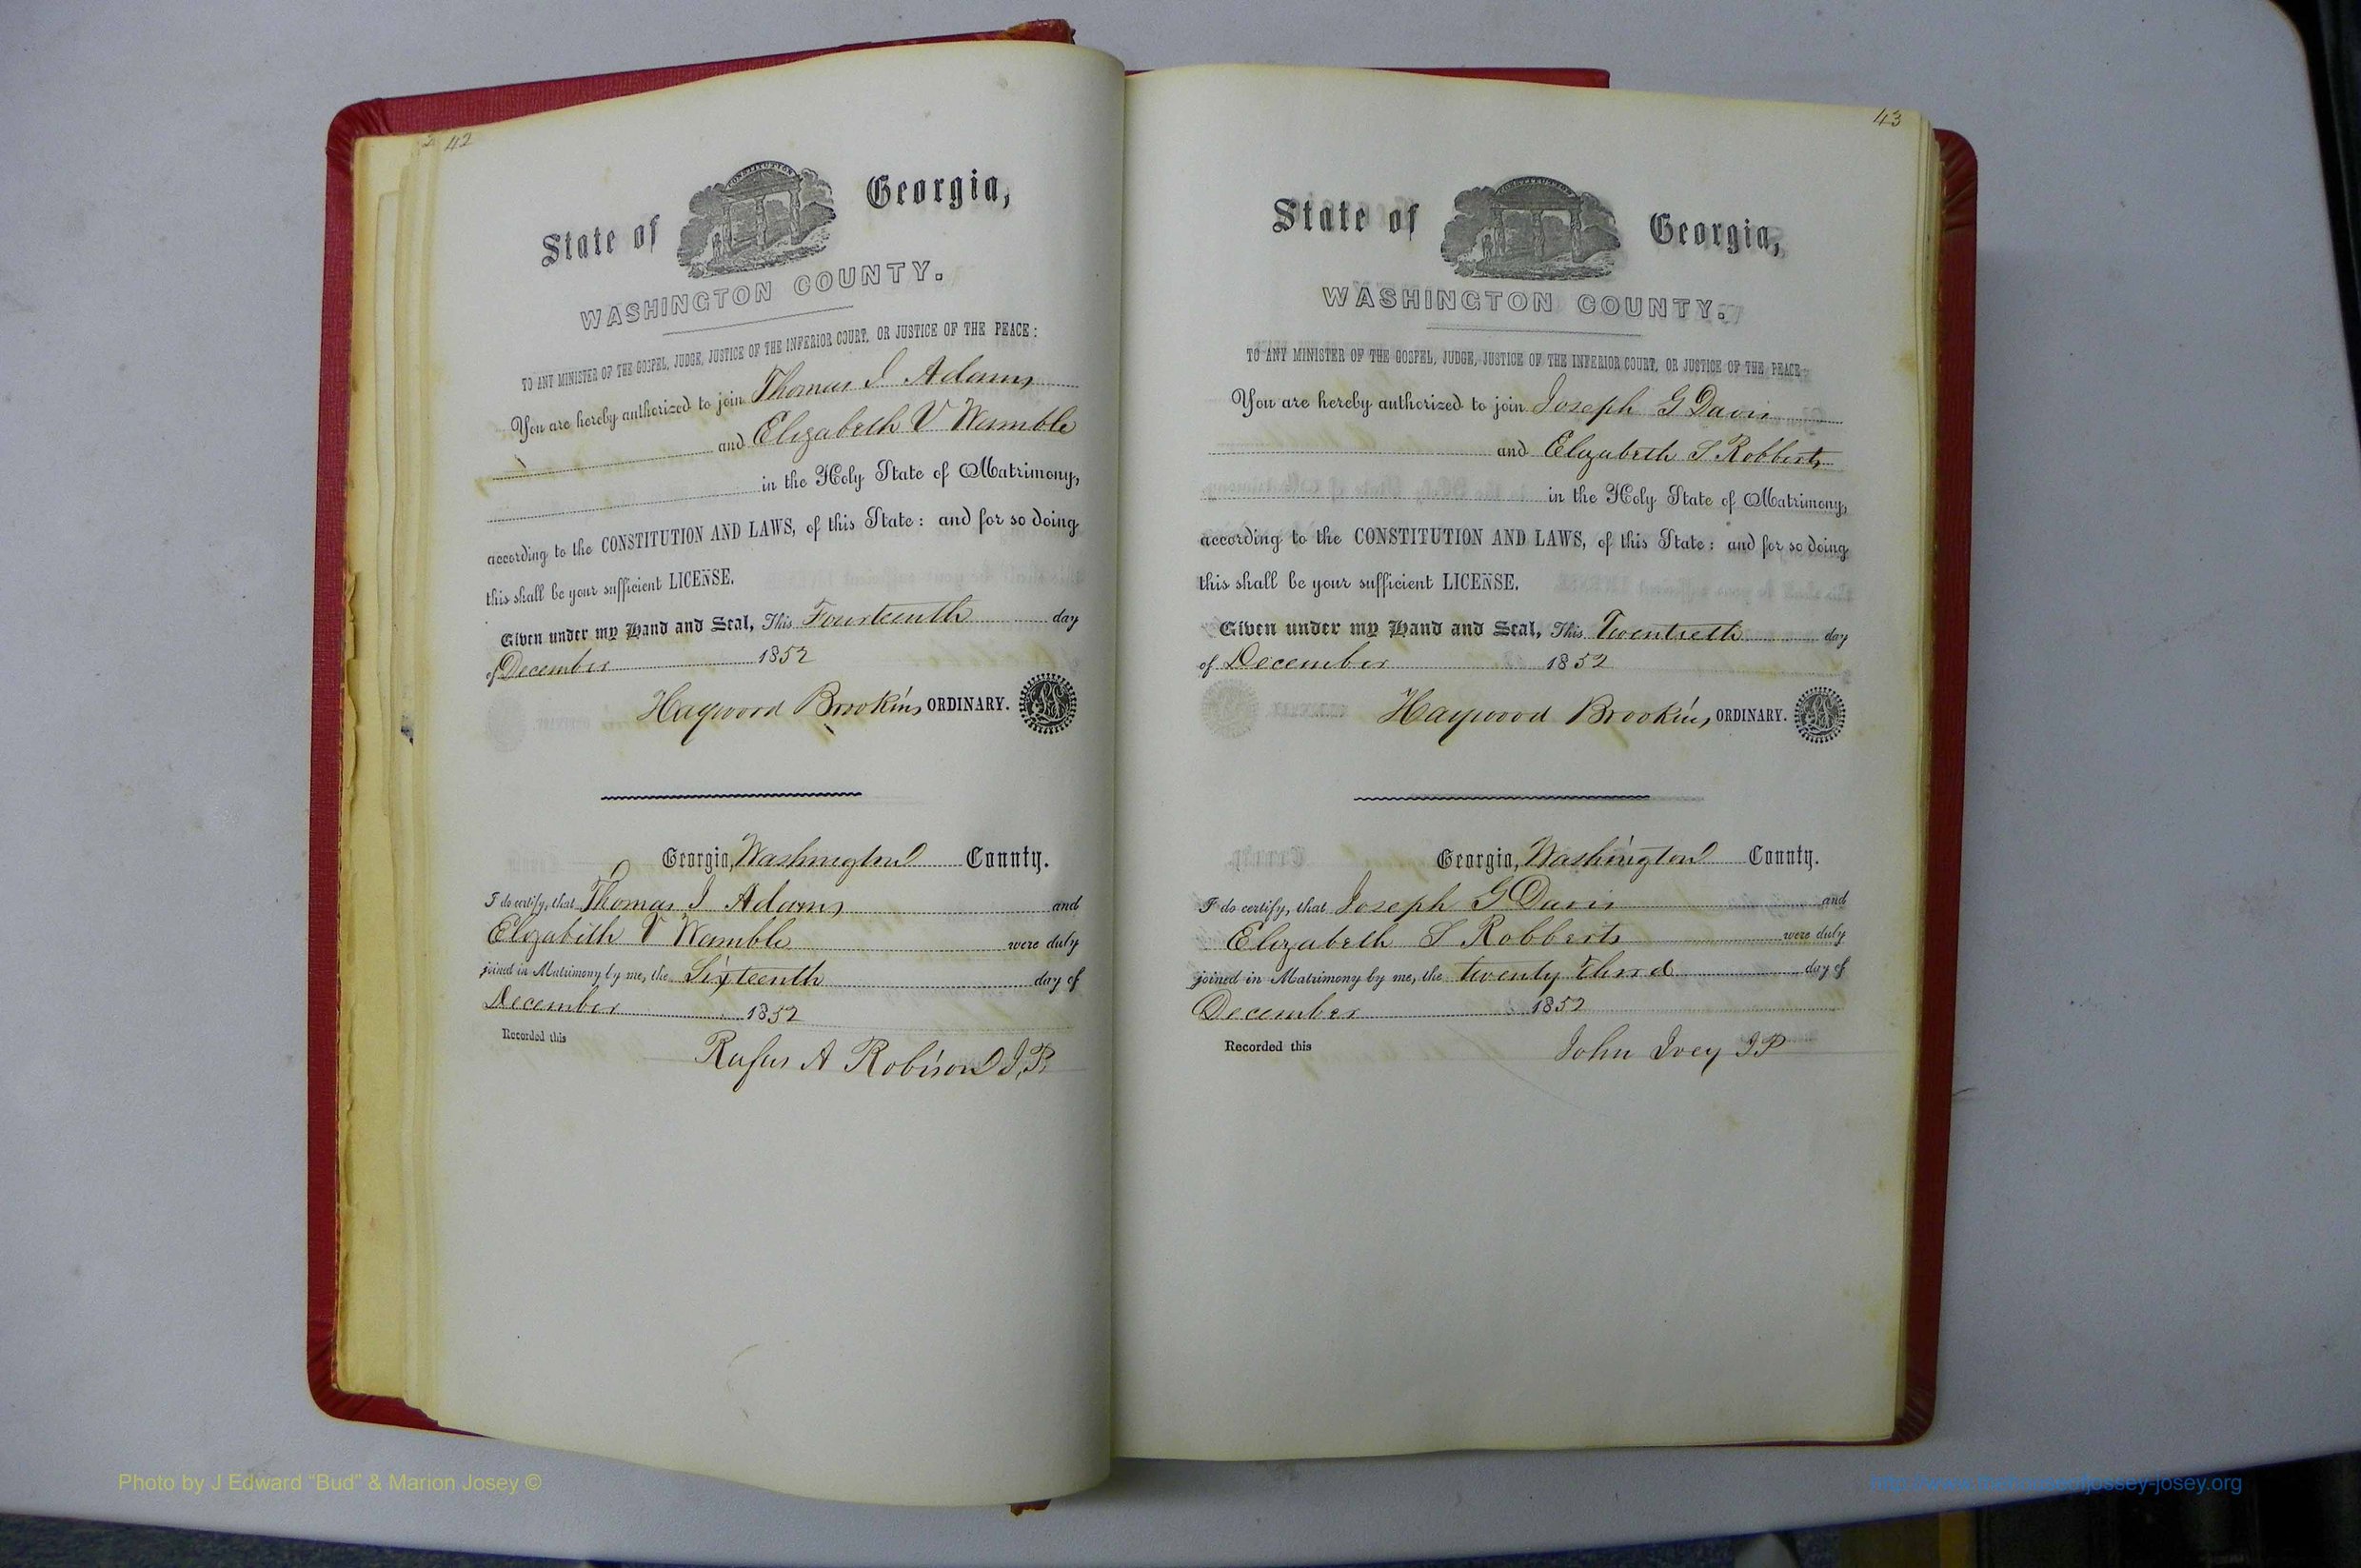 42
CONSTITUTION
State of Georgia,
WASHINGTON COUNTY.
TO ANY MINISTER OF THE GOSPEL, JUDGE, JUSTICE OF THE INFERIOR COURT, OR JUSTICE OF THE PEACE:
You are hereby authorized to join Thomas J Adams
and Elizabeth V Wamble
in the Holy State of Matrimony,
according to the CONSTITUTION AND LAWS, of this State: and for so doing
this shall be your sufficient LICENSE.
Given under my Hand and Seal, This Fourteenth day
of December 1852
Haywood Brookins ORDINARY.
Georgia, Washington County.
I do certify, that Thomas J Adams and
Elizabeth V Wamble were duly
joined in Matrimony by me, the Sixteenth day of
December 1852
Recorded this
Rufus A Robison J.P.
43
CONSTITUTION
State of Georgia,
WASHINGTON COUNTY.
TO ANY MINISTER OF THE GOSPEL, JUDGE, JUSTICE OF THE INFERIOR COURT, OR JUSTICE OF THE PEACE:
You are hereby authorized to join Joseph G Davis
and Elizabeth S Robberts
in the Holy State of Matrimony,
according to the CONSTITUTION AND LAWS, of this State: and for so doing
this shall be your sufficient LICENSE.
Given under my Hand and Seal, This Twentieth day
of December 1852
Haywood Brookins, ORDINARY.
Georgia, Washington County.
I do certify, that Joseph G Davis and
Elizabeth S Robberts were duly
joined in Matrimony by me, the twenty third day of
December 1852
Recorded this
John Ivey JP
Photo by J Edward “Bud” & Marion Josey ©
http://www.thehouseofjossey-josey.org